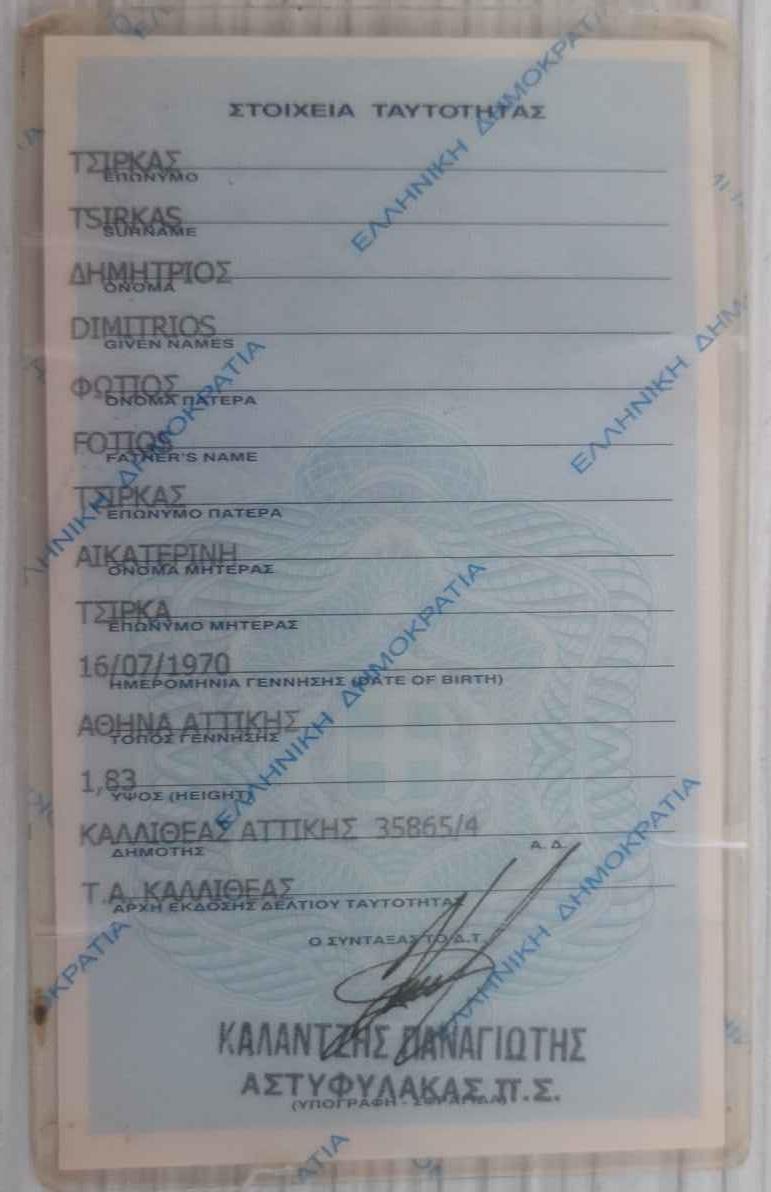 ΣΤΟΙΧΕΙΑ ΤΑΥΤΟΤΗΤΑΣ
ΤΣΙΡΚΑΣ
ΕΠΩΝΥΜΟ
TSIRKAS
SURNAME
ΔΗΜΗΤΡΙΟΣ
ΟΝΟΜΑ
DIMITRIOS
GIVEN NAMES
ΦΩΤΙΟΣ
ΟΝΟΜΑ ΠΑΤΕΡΑ
FOTIOS
FATHER'S NAME
ΤΣΙΡΚΑΣ
ΕΠΩΝΥΜΟ ΠΑΤΕΡΑ
ΑΙΚΑΤΕΡΙΝΗ
ΟΝΟΜΑ ΜΗΤΕΡΑΣ
ΤΣΙΡΚΑ
ΕΠΩΝΥΜΟ ΜΗΤΕΡΑΣ
16/07/1970
ΗΜΕΡΟΜΗΝΙΑ ΓΕΝΝΗΣΗΣ (DATE OF BIRTH)
ΑΘΗΝΑ ΑΤΤΙΚΗΣ
ΤΟΠΟΣ ΓΕΝΝΗΣΗΣ
1,83
ΥΨΟΣ (HEIGHT)
ΚΑΛΛΙΘΕΑΣ ΑΤΤΙΚΗΣ 35865/4
ΔΗΜΟΤΗΣ Α. Δ.
Τ.Α. ΚΑΛΛΙΘΕΑΣ
ΑΡΧΗ ΕΚΔΟΣΗΣ ΔΕΛΤΙΟΥ ΤΑΥΤΟΤΗΤΑΣ
Ο ΣΥΝΤΑΞΑΣ ΤΟ Δ.Τ.
ΚΑΛΑΝΤΖΗΣ ΠΑΝΑΓΙΩΤΗΣ
ΑΣΤΥΦΥΛΑΚΑΣ Π.Σ.
(ΥΠΟΓΡΑΦΗ - ΣΦΡΑΓΙΔΑ)
ΕΛΛΗΝΙΚΗ ΔΗΜΟΚΡΑΤΙΑ
ΕΛΛΗΝΙΚΗ ΔΗΜ
ΛΗΝΙΚΗ ΔΗΜΟΚΡΑΤΙΑ
ΕΛΛΗΝΙΚΗ ΔΗΜΟΚΡΑΤΙΑ
ΕΛΛΗΝΙΚΗ ΔΗΜΟΚΡΑΤΙΑ
ΟΚΡΑΤΙΑ
ΑΤΙΑ